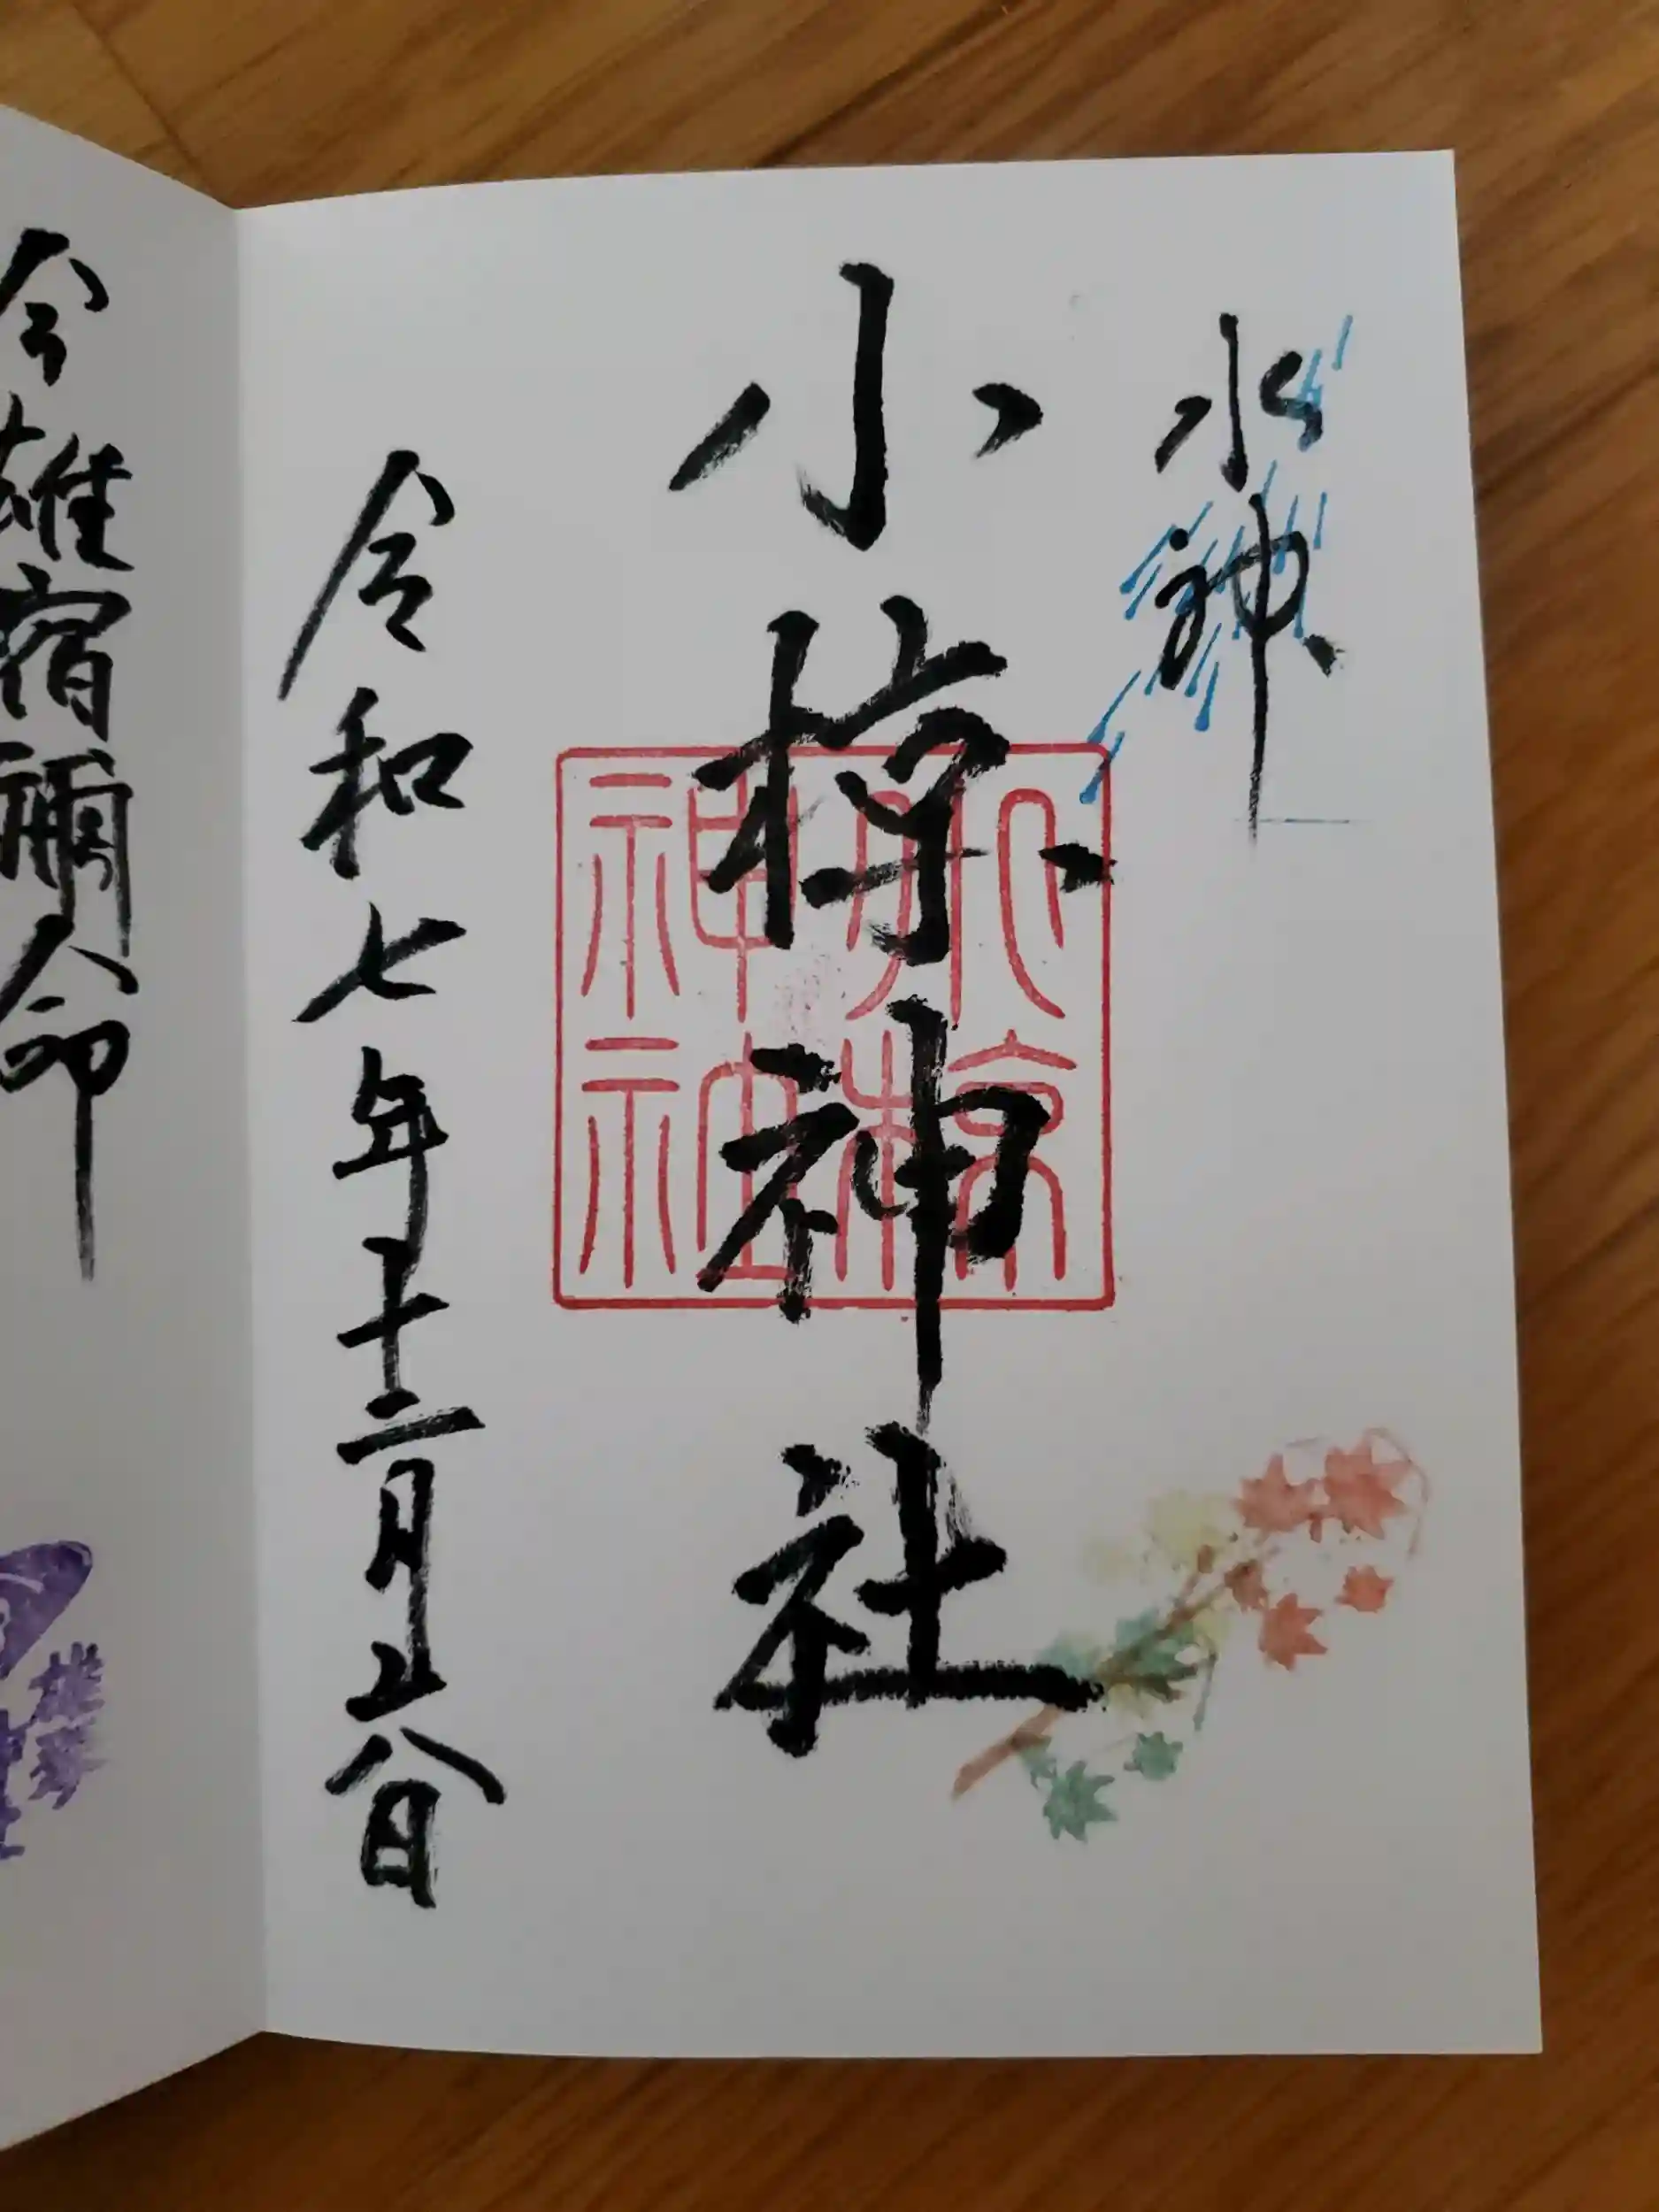 水神
小椋神社
小椋神社
令和七年十二月廿八日
今雄宿禰命
雄琴